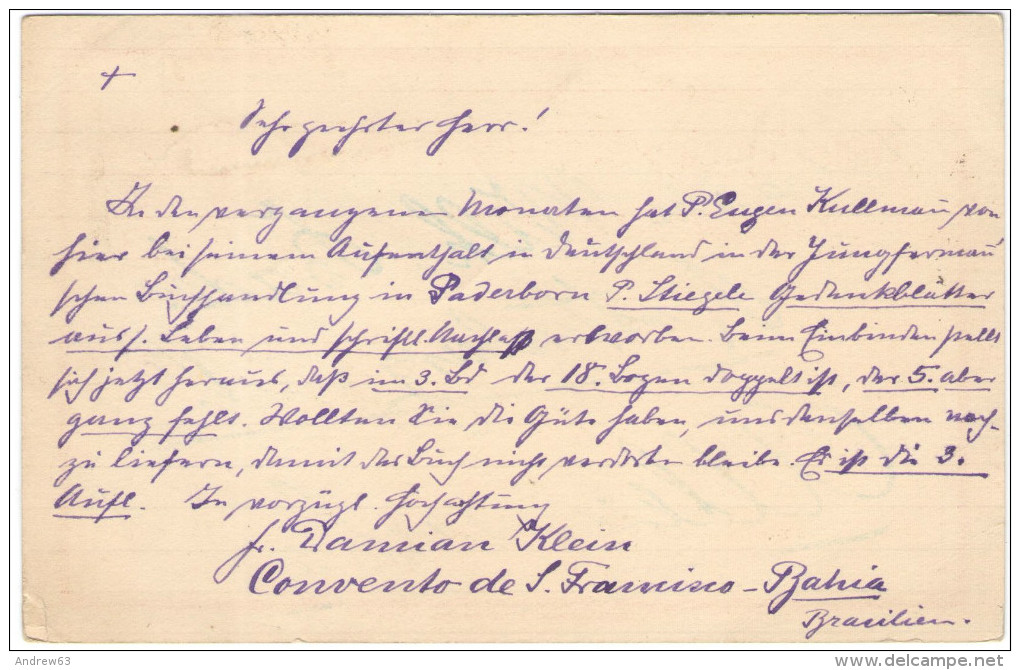 +
Sehr geehrter Herr!
In den vergangenen Monaten hat P. Eugen Kullmann von
hier bei seinem Aufenthalt in Deutschland in der Jungferman̄
schen Buchhandlung in Paderborn P. Stiegele Gedenkblätter
aus s. Leben und schriftl. Nachlaß erworben. Beim Einbinden stellt
sich jetzt heraus, daß im 3. Bd der 18. Bogen doppelt ist, der 5. aber
ganz fehlt. Wollten Sie die Güte haben, uns denselben nach-
zu liefern, damit das Buch nicht verdorben bleibe. Es ist die 3.
Aufl. In vorzügl. Hochachtung
fr. Damian Klein
Convento de S. Francisco - Bahia
Brasilien.
Andrew63
delcampe.net